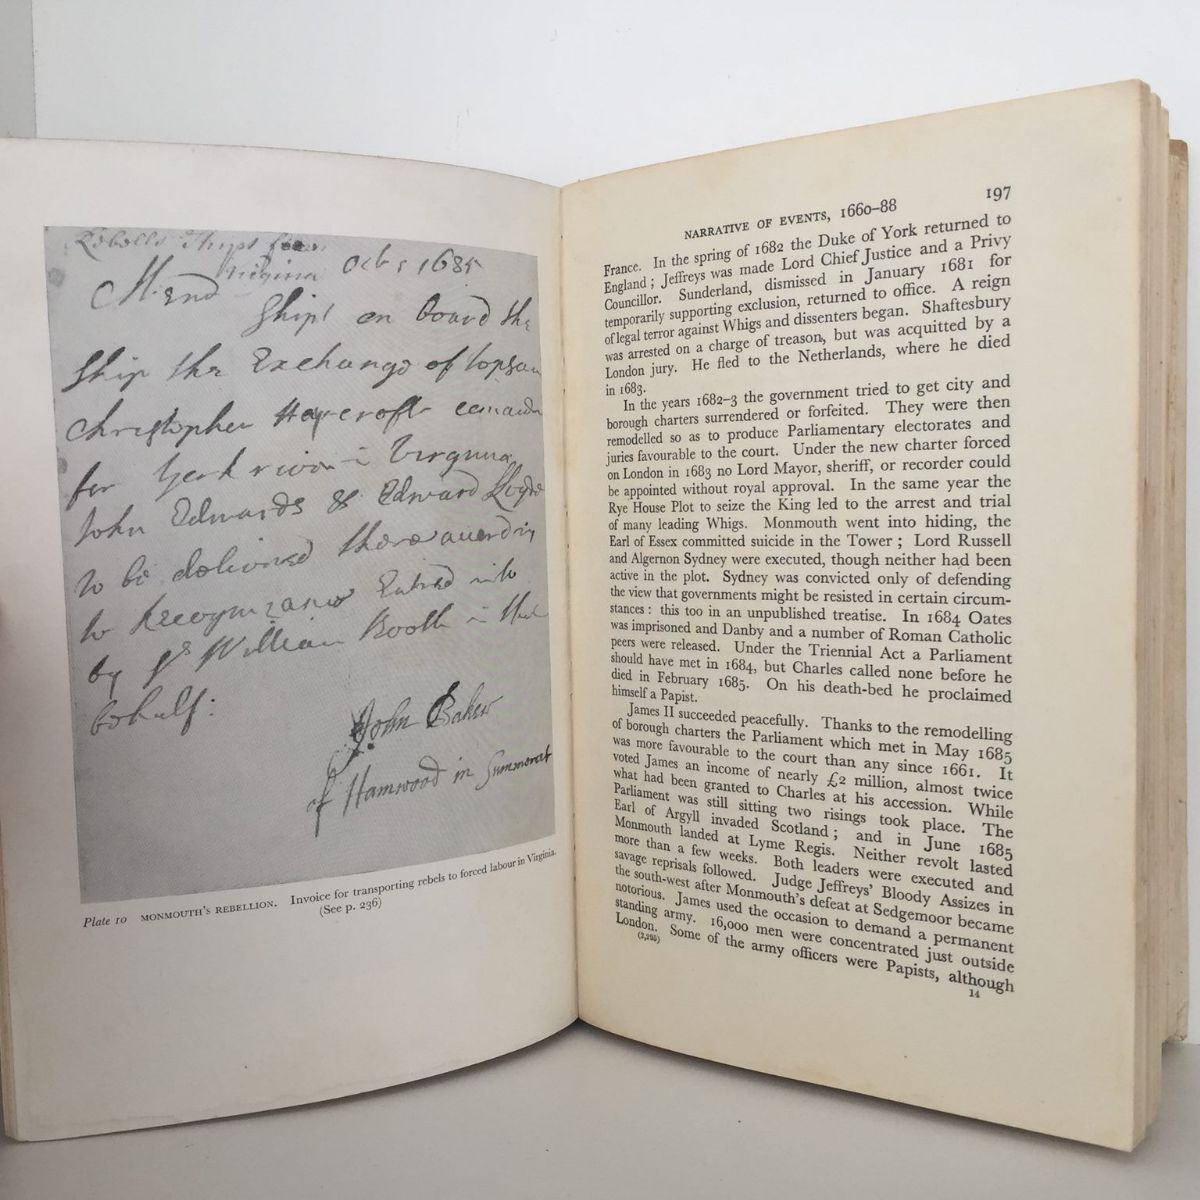 Rebells Shipt for
Virginia Oct 1685
Shipt on board the
Ship the Exchange of Topsam
Christopher
for york river in Virginia
John Edwards & Edward Lloyd
to be delivered there according
to Recognizance Entred into
by Sr William Booth in their
behalf:
John Baker
of Hamwood in Summerset
Plate 10 MONMOUTH'S REBELLION. Invoice for transporting rebels to forced labour in Virginia.
(See p. 236)
NARRATIVE OF EVENTS, 1660–88 197
France. In the spring of 1682 the Duke of York returned to
England ; Jeffreys was made Lord Chief Justice and a Privy
Councillor. Sunderland, dismissed in January 1681 for
temporarily supporting exclusion, returned to office. A reign
of legal terror against Whigs and dissenters began. Shaftesbury
was arrested on a charge of treason, but was acquitted by a
London jury. He fled to the Netherlands, where he died
in 1683.
In the years 1682–3 the government tried to get city and
borough charters surrendered or forfeited. They were then
remodelled so as to produce Parliamentary electorates and
juries favourable to the court. Under the new charter forced
on London in 1683 no Lord Mayor, sheriff, or recorder could
be appointed without royal approval. In the same year the
Rye House Plot to seize the King led to the arrest and trial
of many leading Whigs. Monmouth went into hiding, the
Earl of Essex committed suicide in the Tower ; Lord Russell
and Algernon Sydney were executed, though neither had been
active in the plot. Sydney was convicted only of defending
the view that governments might be resisted in certain circum-
stances : this too in an unpublished treatise. In 1684 Oates
was imprisoned and Danby and a number of Roman Catholic
peers were released. Under the Triennial Act a Parliament
should have met in 1684, but Charles called none before he
died in February 1685. On his death-bed he proclaimed
himself a Papist.
James II succeeded peacefully. Thanks to the remodelling
of borough charters the Parliament which met in May 1685
was more favourable to the court than any since 1661. It
voted James an income of nearly £2 million, almost twice
what had been granted to Charles at his accession. While
Parliament was still sitting two risings took place. The
Earl of Argyll invaded Scotland ; and in June 1685
Monmouth landed at Lyme Regis. Neither revolt lasted
more than a few weeks. Both leaders were executed and
savage reprisals followed. Judge Jeffreys' Bloody Assizes in
the south-west after Monmouth's defeat at Sedgemoor became
notorious. James used the occasion to demand a permanent
standing army. 16,000 men were concentrated just outside
London. Some of the army officers were Papists, although
(2,295) 14